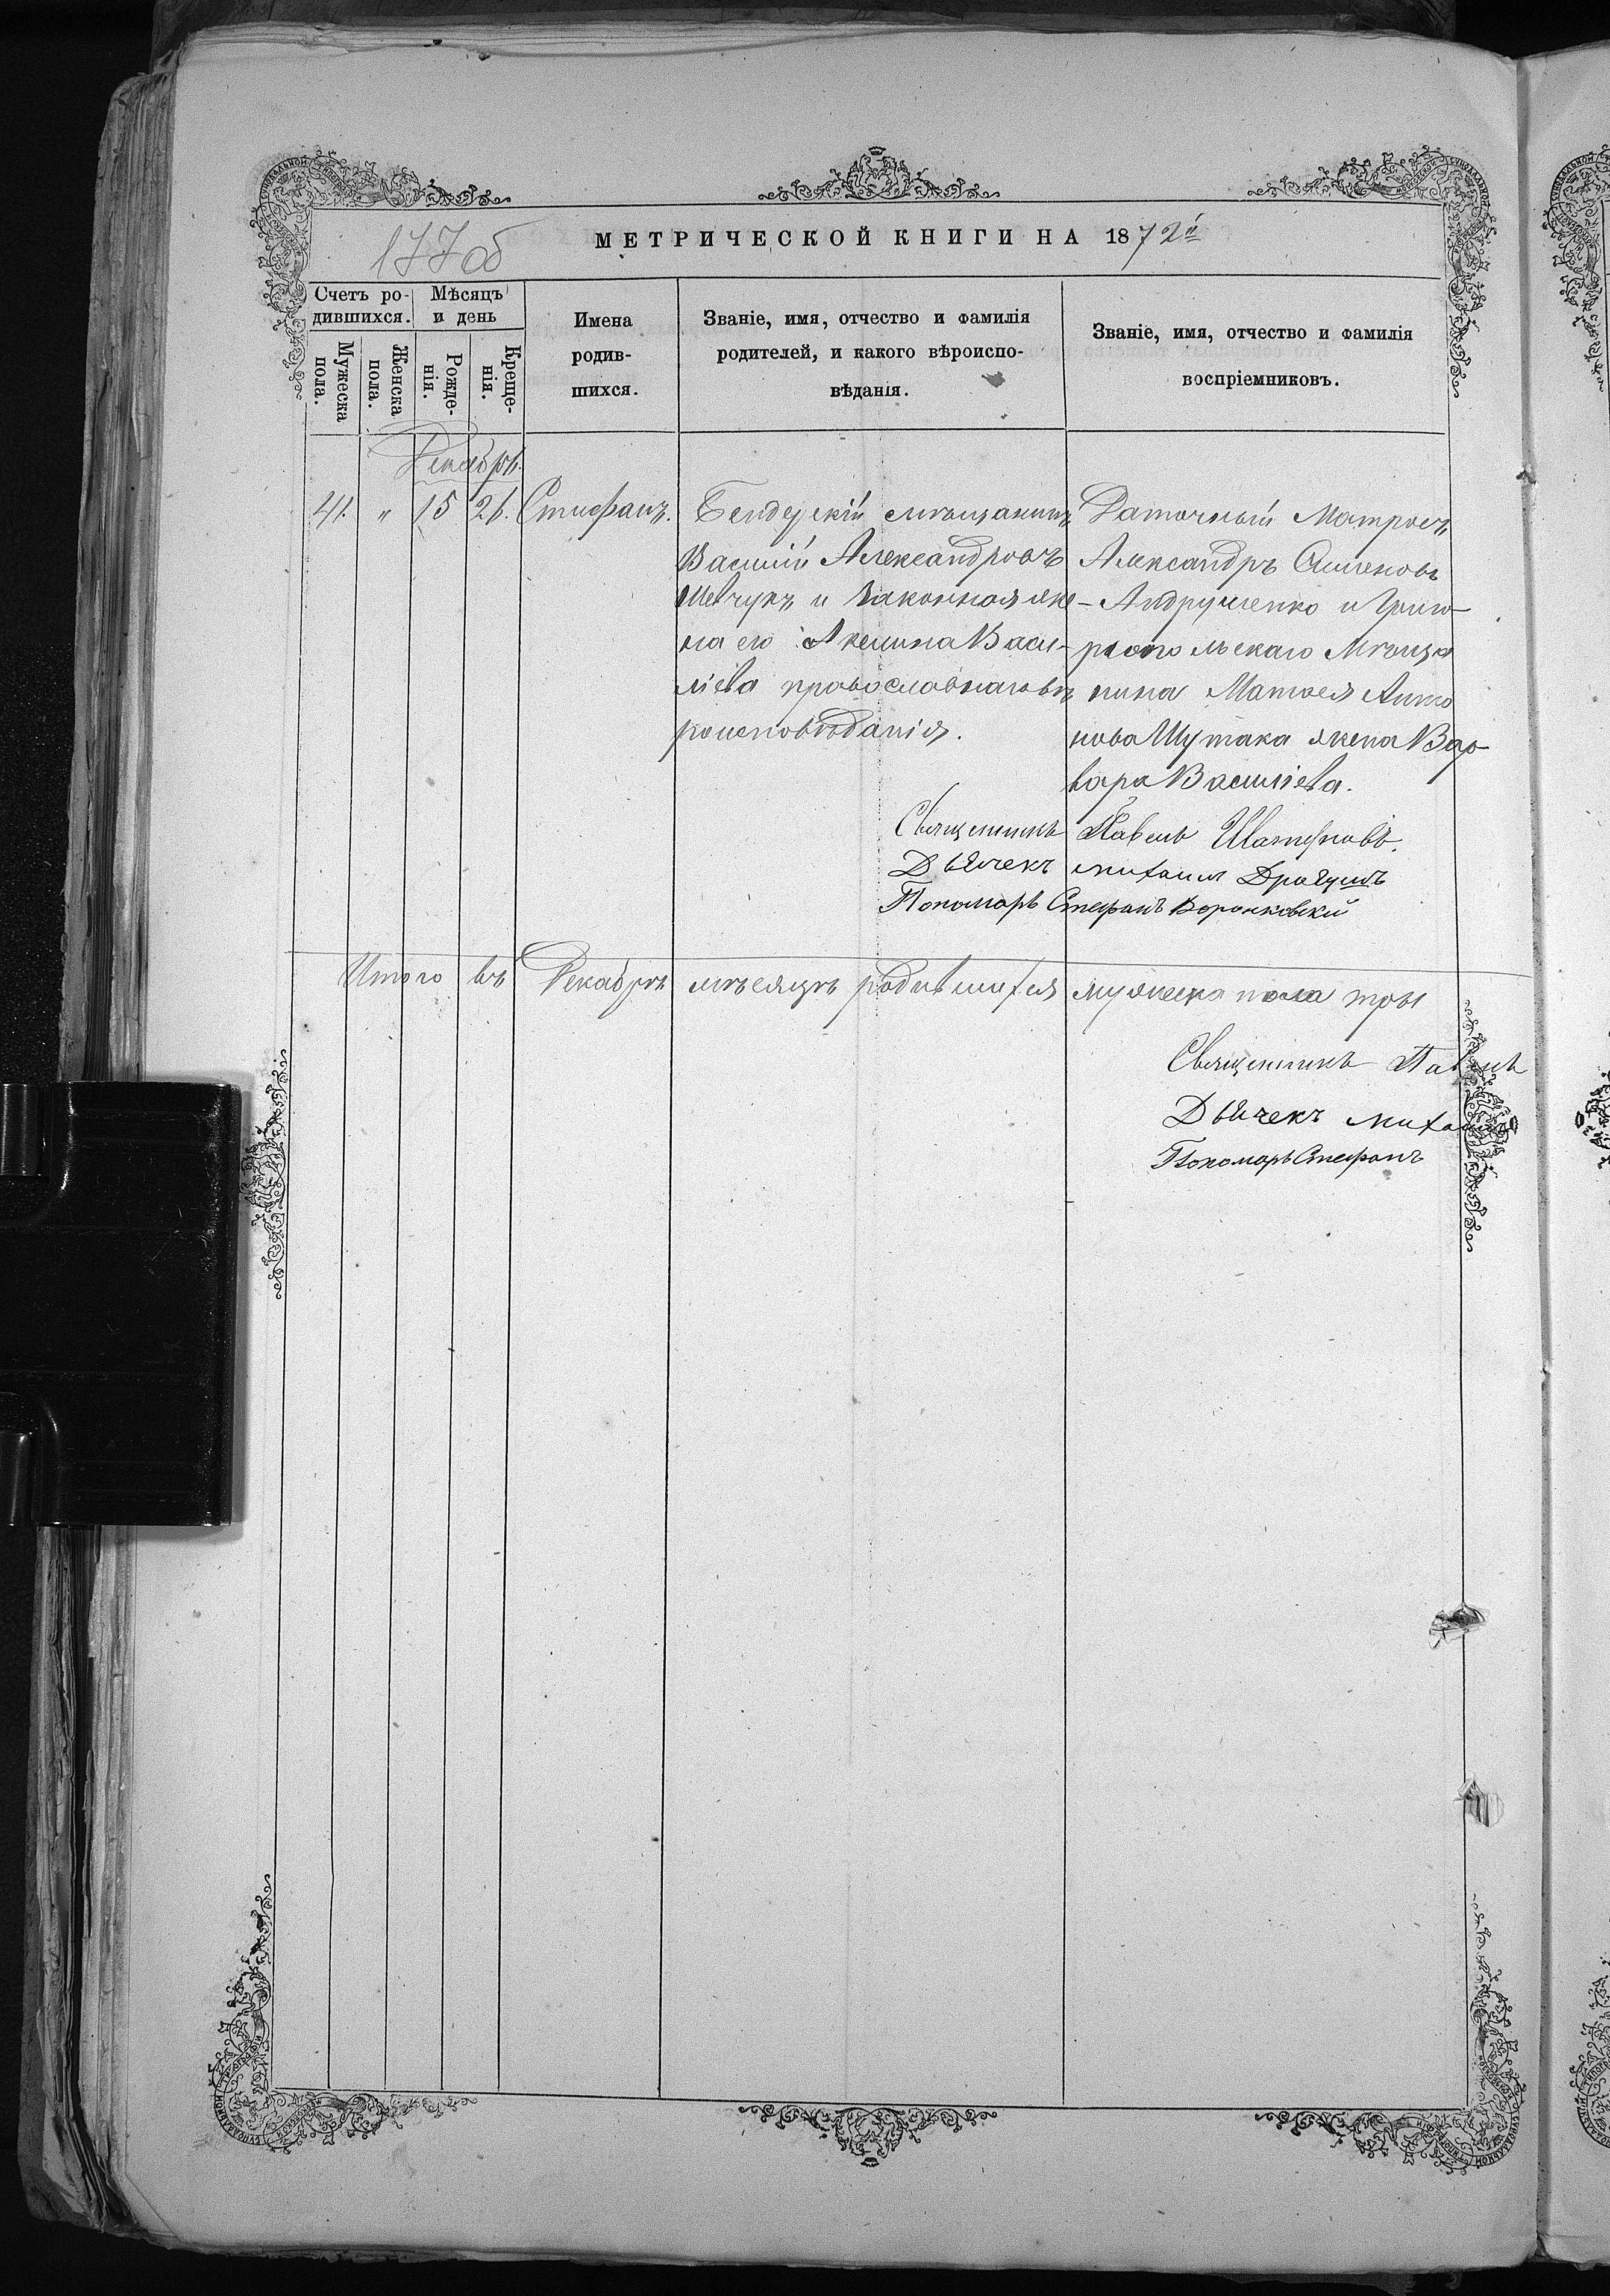 177об
МЕТРИЧЕСКОЙ КНИГИ НА 1872й
Счетъ ро-
дившихся.
Мѣсяцъ
и день
Мужеска
пола.
Женска
пола.
Рожде-
нія.
Креще-
нія.
Имена
родив-
шихся.
Званіе, имя, отчество и фамилія
родителей, и какого вѣроиспо-
вѣданія.
Званіе, имя, отчество и фамилія
воспріемниковъ.
Декабрь.
41. " 15 21. Стефанъ.
Бендерскій мѣщанинъ
Василій Александровъ
Шевчукъ и законная же-
на его Акелина Васи-
ліева православнаго вѣ
роисповѣданія.
Матросъ
Александръ
Андрущенко и Григо-
ріопольскаго Мѣща
нина Матѳея Анто
нова Шутака жена Вар
вара Василіева.
Священникъ Павелъ
Дьячекъ михаил Драгушъ
Пономарь Стефанъ Воронковскій
Итого въ Декабрѣ мѣсяцѣ родившихся мужеска пола три
Священникъ Павелъ
Дьячекъ михаил
Пономарь Стефанъ